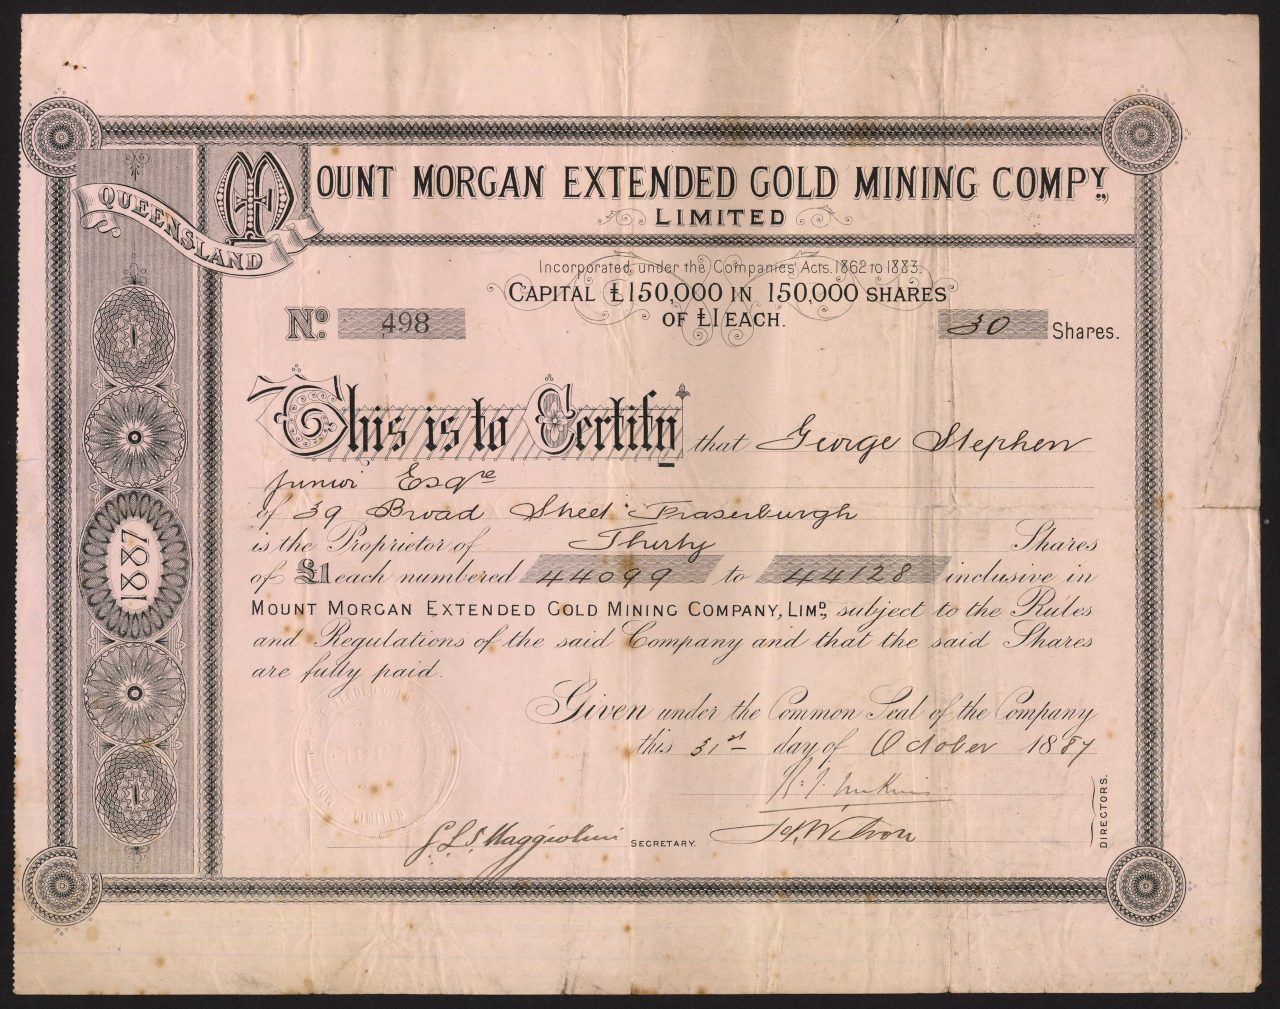 QUEENSLAND
MOUNT MORGAN EXTENDED GOLD MINING COMPY.
LIMITED
Incorporated under the Companies' Acts. 1862 to 1883.
CAPITAL £150,000 IN 150,000 SHARES
OF £1 EACH.
No. 498
30 Shares.
This is to Certify that George Stephen
junior Esqre
of 39 Broad Street Fraserburgh
is the Proprietor of Thirty Shares
of £1 each numbered 44099 to 44128 inclusive in
MOUNT MORGAN EXTENDED GOLD MINING COMPANY, LIMD., subject to the Rules
and Regulations of the said Company and that the said Shares
are fully paid.
Given under the Common Seal of the Company
this 31st day of October 1887
SECRETARY.
DIRECTORS.
1
1887
1